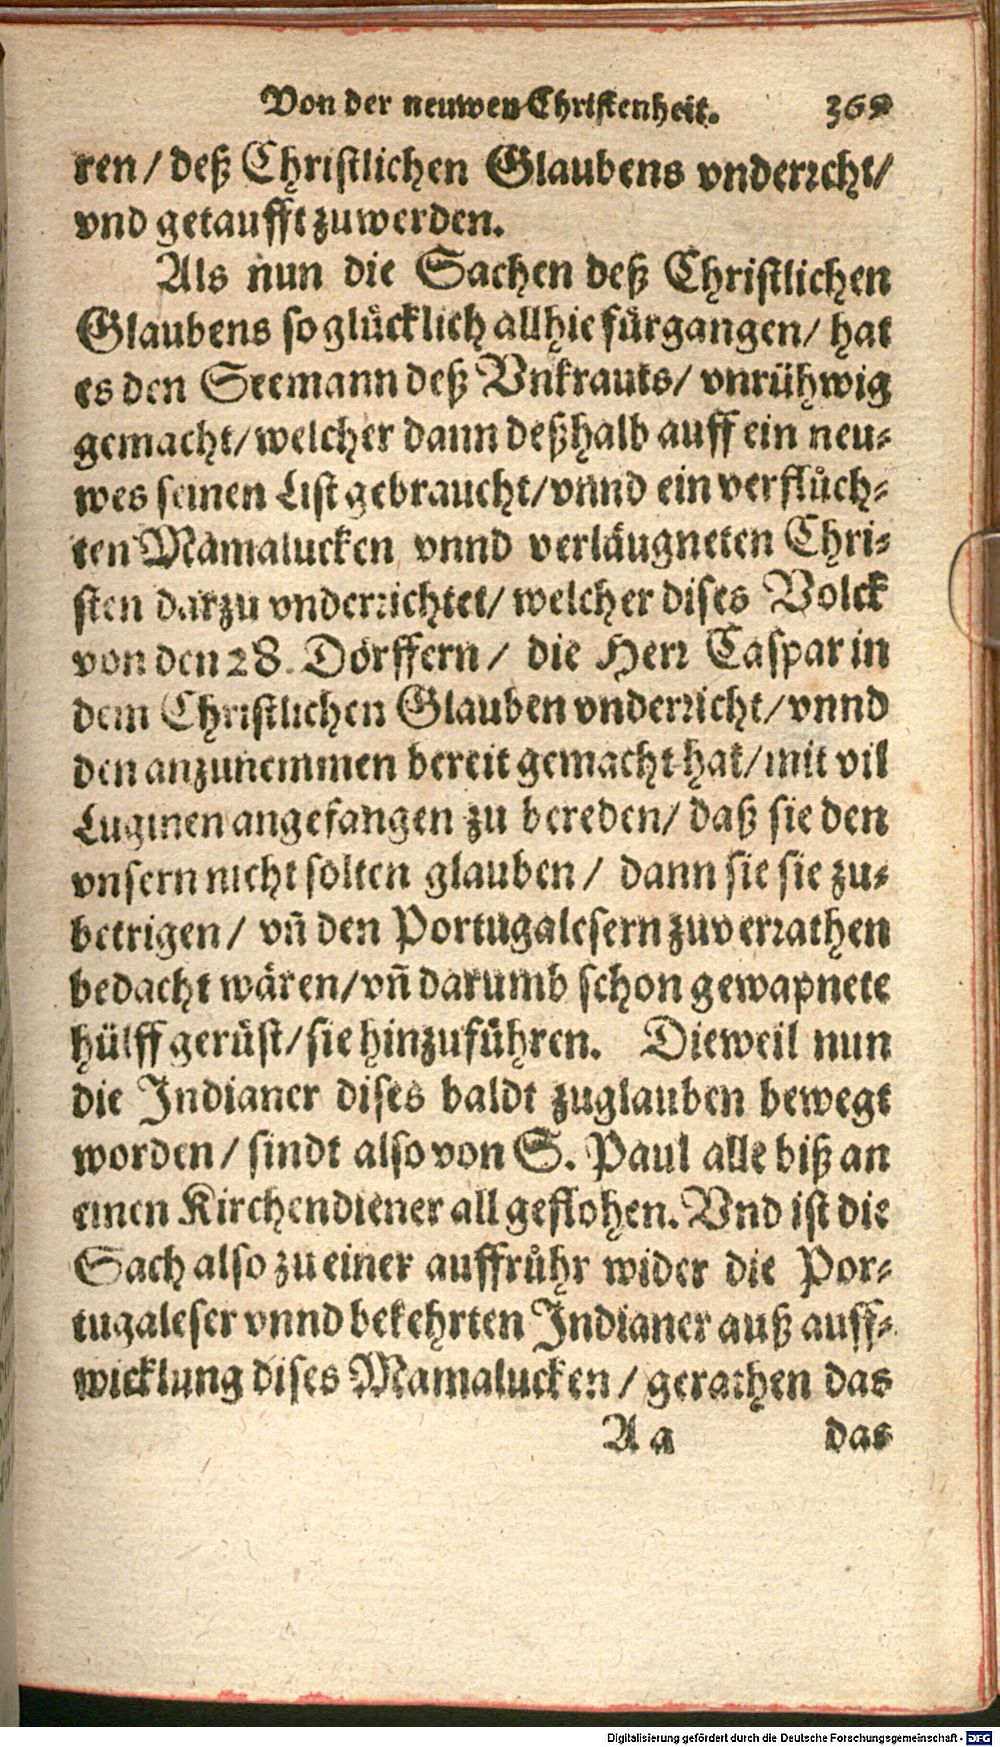 Von der neuwen Christenheit. 369
ren / deß Christlichen Glaubens vnderꝛicht/
vnd getaufft zuwerden.
Als nun die Sachen deß Christlichen
Glaubens so glücklich allhie fürgangen/ hat
es den Seemann deß Vnkrauts/ vnrühwig
gemacht/ welcher dann deßhalb auff ein neu⸗
wes seinen List gebraucht/ vnnd ein verflůch⸗
ten Mamalucken vnnd verläugneten Chri⸗
sten darzu vnderꝛichtet/ welcher dises Volck
von den 28. Dörffern / die Herꝛ Caspar in
dem Christlichen Glauben vnderꝛicht/ vnnd
den anzunemmen bereit gemacht hat/ mit vil
Luginen angefangen zu bereden/ daß sie den
vnsern nicht solten glauben / dann sie sie zu⸗
betrigen / vñ den Portugalesern zuverꝛathen
bedacht wären/ vñ darumb schon gewapnete
hülff gerüst/ sie hinzuführen. Dieweil nun
die Indianer dises baldt zuglauben bewegt
worden / sindt also von S. Paul alle biß an
einen Kirchendiener all geflohen. Vnd ist die
Sach also zu einer auffrůhr wider die Por⸗
tugaleser vnnd bekehrten Indianer auß auff⸗
wicklung dises Mamalucken / gerathen das
A a das
Digitalisierung gefördert durch die Deutsche Forschungsgemeinschaft - DFG